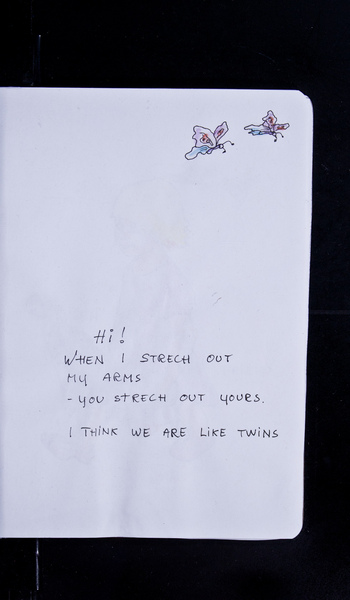 Hi!
WHEN I STRECH OUT
MY ARMS
- YOU STRECH OUT YOURS.
I THINK WE ARE LIKE TWINS